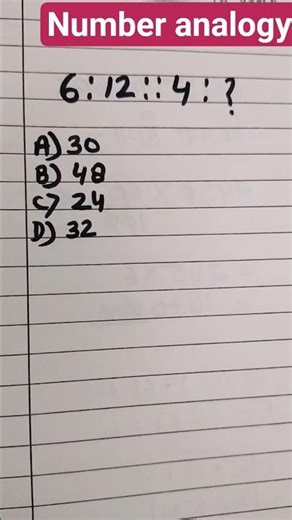 Number analogy
6:12::4:?
A) 30
B) 48
C) 24
D) 32